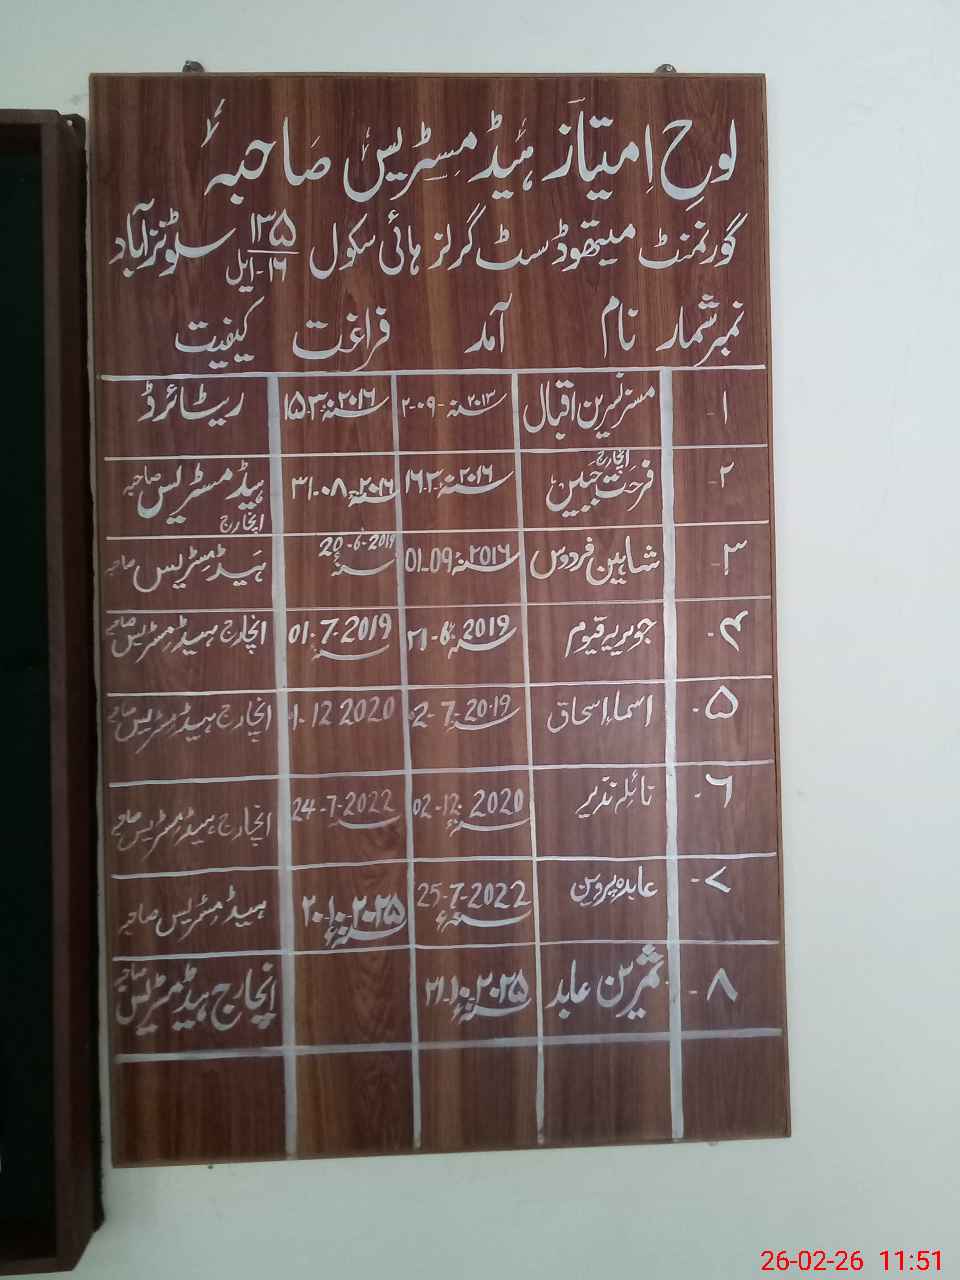 لوحِ اِمتیاز ہیڈ مسٹریس صاحبہ
گورنمنٹ میتھوڈسٹ گرلز ہائی سکول ۱۳۵/۱۶-ایل سلونزآباد
نمبر شمار نام آمد فراغت کیفیت
۱- مسز نسرین اقبال ۲-۰۹-۲۰۱۳ ۱۵-۳-۲۰۱۶ ریٹائرڈ
۲- فرحت جبیں انچارج ۱۶-۳-۲۰۱۶ ۳۱-۰۸-۲۰۱۶ ہیڈ مسٹریس صاحبہ انچارج
۳- شاہین فردوس 01-09-۲۰۱۶ 20-6-2019 ہیڈ مسٹریس صاحبہ
۴- جویریہ قیوم ۲۱-6-2019 01-7-2019 انچارج ہیڈ مسٹریس صاحبہ
۵- اسماء اسحاق 02-7-2019 01-12 2020 انچارج ہیڈ مسٹریس صاحبہ
۶- نائلہ نذیر 02-12-2020 24-7-2022 انچارج ہیڈ مسٹریس صاحبہ
۷- عابدہ پروین 25-7-2022 ۲۰-۱۰-۲۰۲۵ ہیڈ مسٹریس صاحبہ
۸- ثمرین عابد ۲۱-۱۰-۲۰۲۵ انچارج ہیڈ مسٹریس صاحبہ
26-02-26 11:51